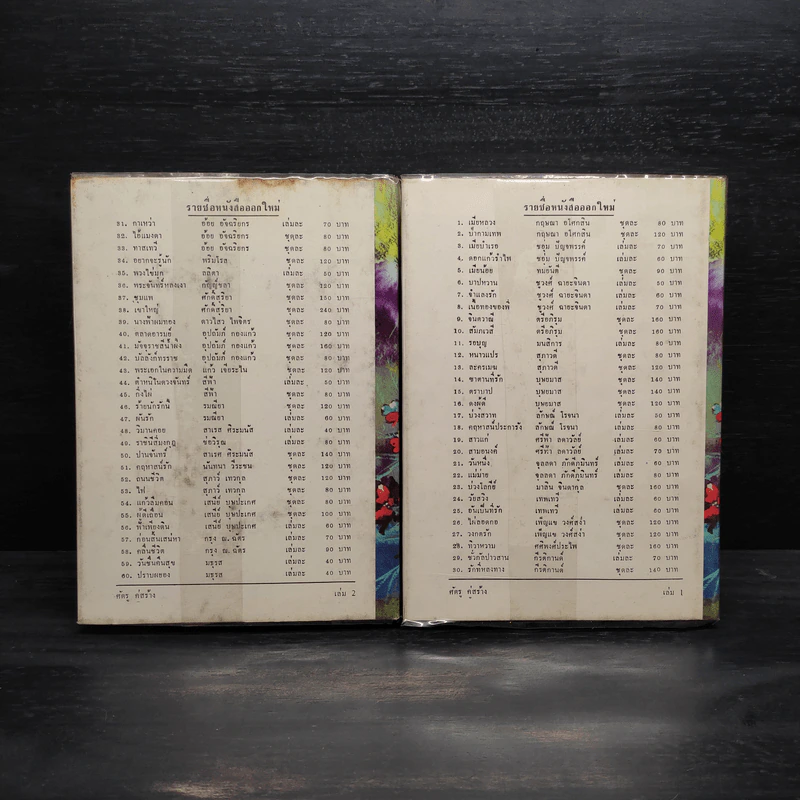 รายชื่อหนังสือออกใหม่
31. คาเหว่า อ้อย อัจฉริยกร เล่มละ 70 บาท
32. ไอ้แมงดา อ้อย อัจฉริยกร ชุดละ 80 บาท
33. ทาสเทวี อ้อย อัจฉริยกร ชุดละ 80 บาท
34. อยากจะรู้นัก พริมโรส ชุดละ 120 บาท
35. พวงไข่มุก ลลิตา เล่มละ 50 บาท
36. พระจันทร์หลงเงา กัญญ์ชลา ชุดละ 120 บาท
37. ชุมแพ ศักดิ์สุริยา ชุดละ 150 บาท
38. เขาใหญ่ ศักดิ์สุริยา ชุดละ 240 บาท
39. นางฟ้าผมทอง ดาวไสว ไพจิตร ชุดละ 80 บาท
40. ตลาดอารมย์ อุปถัมภ์ กองแก้ว ชุดละ 120 บาท
41. มัจจุราชสีน้ำผึ้ง อุปถัมภ์ กองแก้ว ชุดละ 160 บาท
42. บัลลังก์ทรราช อุปถัมภ์ กองแก้ว ชุดละ 80 บาท
43. พระเอกในความมืด แก้ว เจียระไน ชุดละ 120 บาท
44. ตำหนิในดวงจันทร์ สีฟ้า เล่มละ 50 บาท
45. กิ่งไผ่ สีฟ้า ชุดละ 80 บาท
46. ร้ายนักรักนี้ รมณียา ชุดละ 120 บาท
47. ฝันรัก รมณียา เล่มละ 60 บาท
48. วิมานคอย สาเรศ ศิระมนัส เล่มละ 40 บาท
49. ราชินีสีมงกุฎ ช่อวิรุณ เล่มละ 80 บาท
50. ปานจันทร์ สาเรศ ศิระมนัส ชุดละ 140 บาท
51. คฤหาสน์รัก นันทนา วีระชน ชุดละ 120 บาท
52. ถนนชีวิต สุภาว์ เทวกุล ชุดละ 120 บาท
53. ไฟ สุภาว์ เทวกุล ชุดละ 80 บาท
54. แก้วลืมคอน เสนีย์ บุษปะเกศ ชุดละ 80 บาท
55. ผีเสื้อน เสนีย์ บุษปะเกศ ชุดละ 100 บาท
56. ฟ้าเพียงดิน เสนีย์ บุษปะเกศ เล่มละ 60 บาท
57. ก่อนสิ้นเสน่หา กรุง ณ. ฉัตร เล่มละ 50 บาท
58. คลื่นชีวิต กรุง ณ. ฉัตร ชุดละ 90 บาท
59. วันชื่นคืนสุข มธุรส เล่มละ 40 บาท
60. ปราบพยอง มธุรส เล่มละ 40 บาท
ศัตรู คู่สร้าง เล่ม 2
รายชื่อหนังสือออกใหม่
1. เมียหลวง กฤษณา อโศกสิน ชุดละ 80 บาท
2. น้ำกามเทพ กฤษณา อโศกสิน ชุดละ 120 บาท
3. เมียบำเรอ ชอุ่ม ปัญจพรรค์ เล่มละ 70 บาท
4. ดอกแก้วรำไพ ชอุ่ม ปัญจพรรค์ เล่มละ 60 บาท
5. เมียน้อย ทมยันตี ชุดละ 90 บาท
6. บาปหวาน ชูวงศ์ ฉายะจินดา เล่มละ 50 บาท
7. จำเลยรัก ชูวงศ์ ฉายะจินดา เล่มละ 70 บาท
8. เนื้อทองของพี่ ชูวงศ์ ฉายะจินดา เล่มละ 60 บาท
9. จินตวาณี ตรีอภิรุม ชุดละ 160 บาท
10. สัมภเวสี ตรีอภิรุม ชุดละ 160 บาท
11. รอยบุญ มนสิการ ชุดละ 80 บาท
12. หนาวแปร สุภาวดี ชุดละ 120 บาท
13. ละครเมฆ สุภาวดี ชุดละ 80 บาท
14. ซาตานที่รัก บุษยมาส ชุดละ 140 บาท
15. ตราบาป บุษยมาส ชุดละ 140 บาท
16. ดงผู้ดี บุษยมาส ชุดละ 120 บาท
17. บ่วงสวาท ลักษณ์ โรจนา เล่มละ 50 บาท
18. คฤหาสน์ประการัง ลักษณ์ โรจนา ชุดละ 80 บาท
19. สาวแก่ ศรีฟ้า ลดาวัลย์ เล่มละ 60 บาท
20. สามอนงค์ ศรีฟ้า ลดาวัลย์ ชุดละ 120 บาท
21. วันหนึ่ง จุลลดา ภักดีภูมินทร์ เล่มละ 60 บาท
22. แม่ม่าย จุลลดา ภักดีภูมินทร์ เล่มละ 60 บาท
23. บ่วงโลกีย์ มาลิน จินดากุล ชุดละ 160 บาท
24. วัยสวิง เทพเทวี ชุดละ 80 บาท
25. ฉันเป็นที่รัก เทพเทวี เล่มละ 60 บาท
26. ไผ่ลอดกอ เพ็ญแข วงศ์สง่า ชุดละ 120 บาท
27. วงกตรัก เพ็ญแข วงศ์สง่า ชุดละ 120 บาท
28. ทิวาหวาม ศศิพงศ์ประไพ ชุดละ 160 บาท
29. ชั่วกัลปาวสาน กีรติกานต์ เล่มละ 70 บาท
30. รักที่หลงทาง กีรติกานต์ ชุดละ 140 บาท
ศัตรู คู่สร้าง เล่ม 1